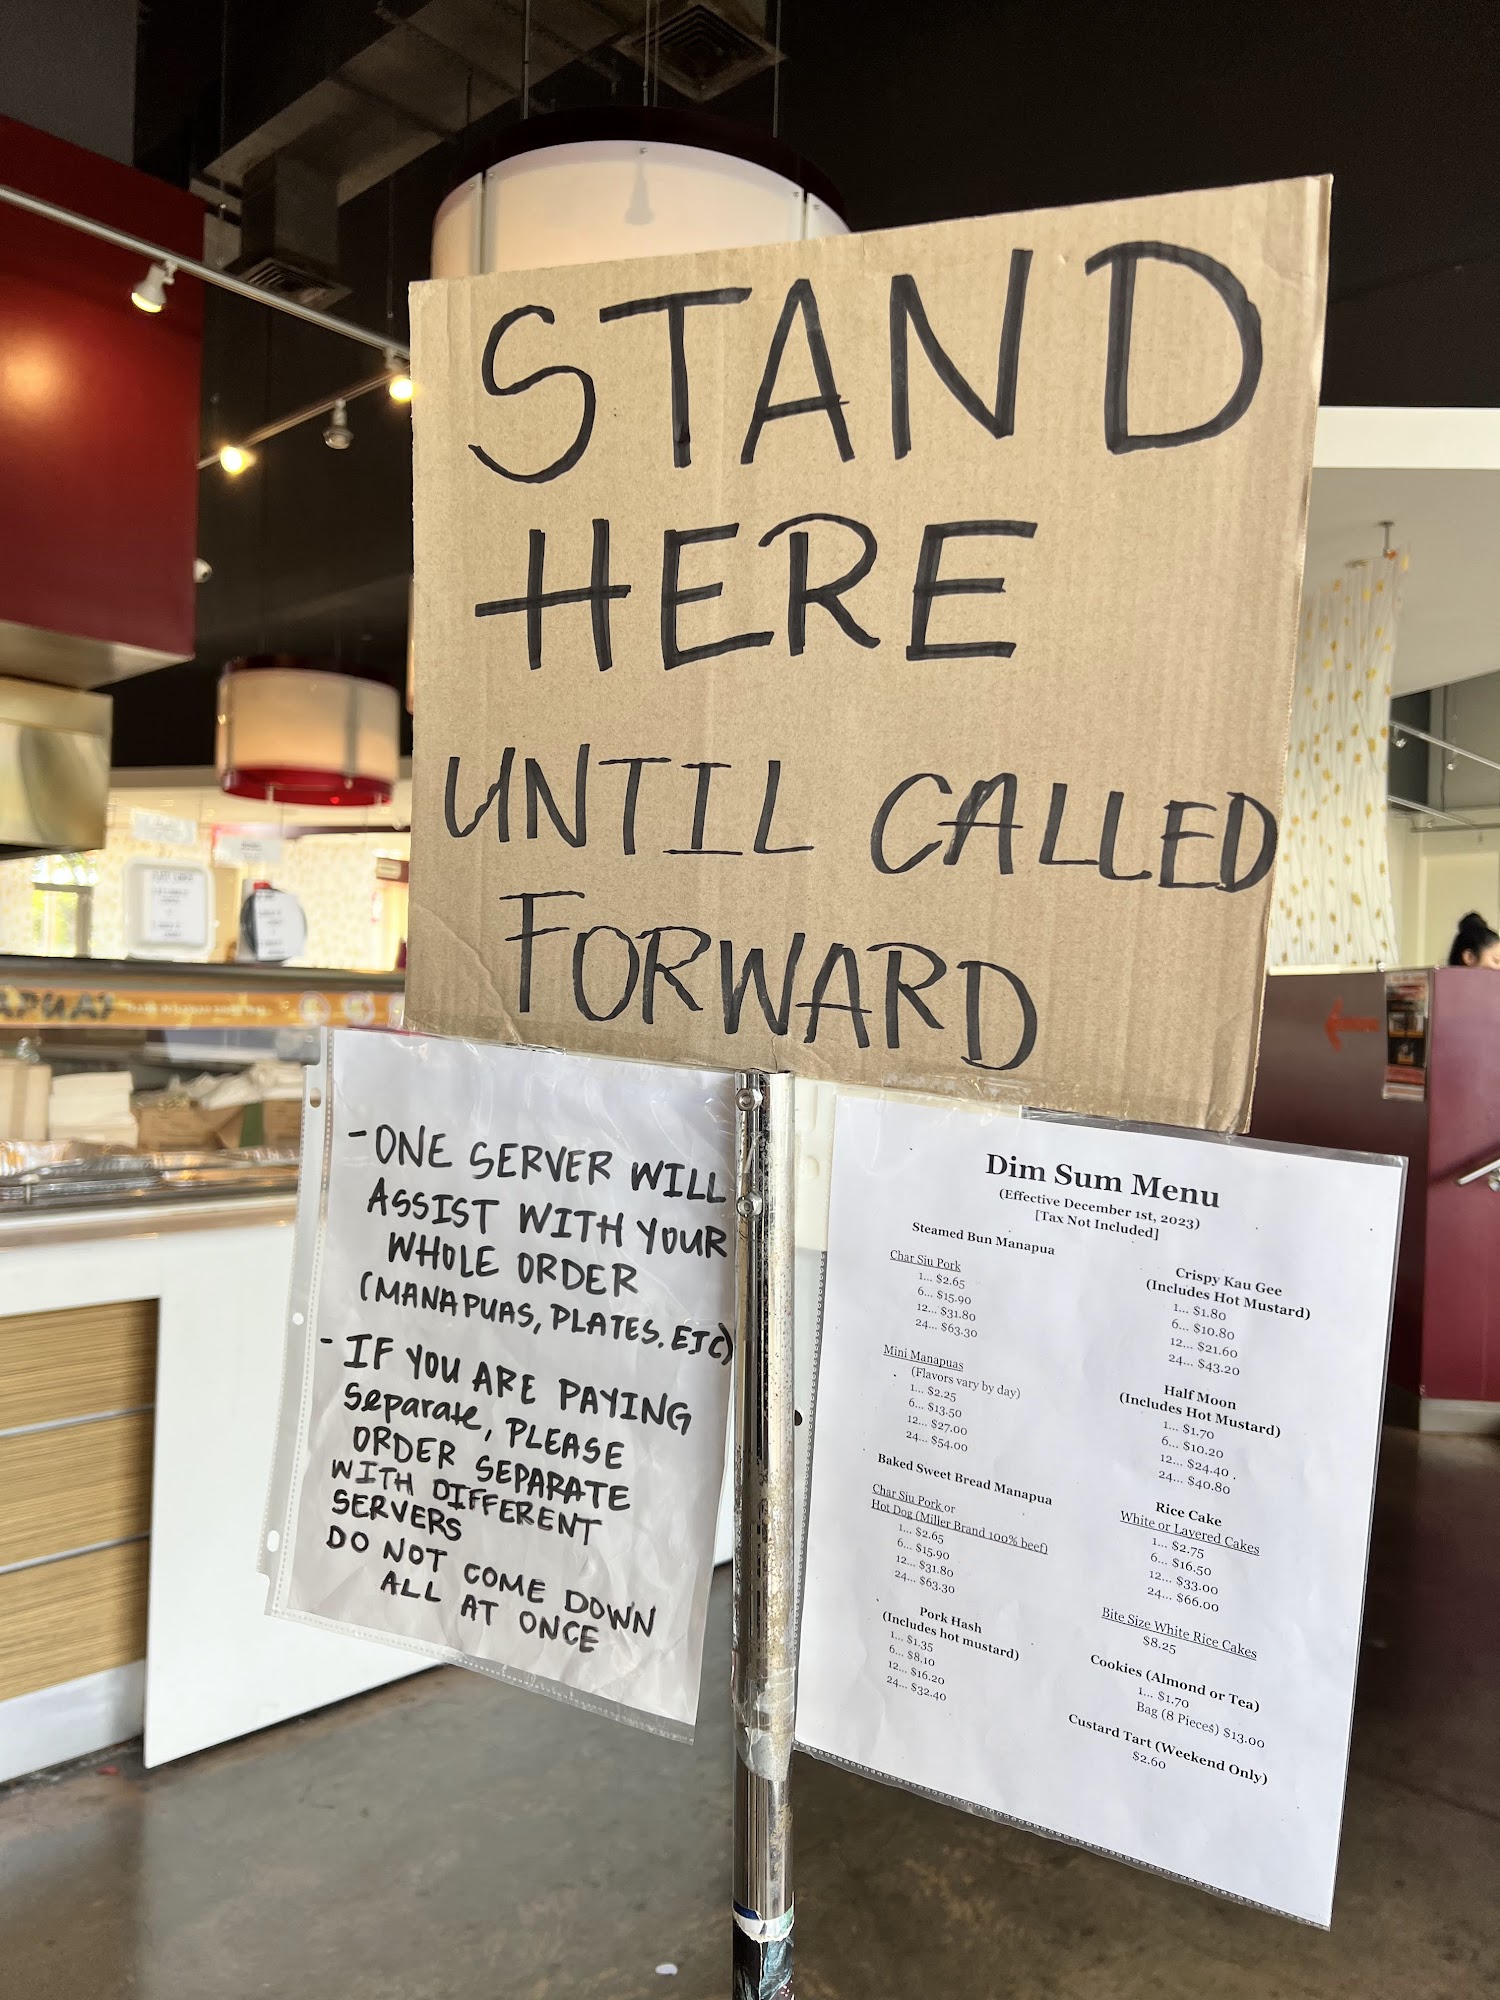 STAND
HERE
UNTIL CALLED
FORWARD
- ONE SERVER WILL
ASSIST WITH YOUR
WHOLE ORDER
(MANAPUAS, PLATES. ETC)
- IF YOU ARE PAYING
separate, PLEASE
ORDER SEPARATE
WITH DIFFERENT
SERVERS
DO NOT COME DOWN
ALL AT ONCE
Dim Sum Menu
(Effective December 1st, 2023)
[Tax Not Included]
Steamed Bun Manapua
Char Siu Pork
1... $2.65
6... $15.90
12... $31.80
24... $63.30
Mini Manapuas
(Flavors vary by day)
1... $2.25
6... $13.50
12... $27.00
24... $54.00
Baked Sweet Bread Manapua
Char Siu Pork or
Hot Dog (Miller Brand 100% beef)
1... $2.65
6... $15.90
12... $31.80
24... $63.30
Pork Hash
(Includes hot mustard)
1... $1.35
6... $8.10
12... $16.20
24... $32.40
Crispy Kau Gee
(Includes Hot Mustard)
1... $1.80
6... $10.80
12... $21.60
24... $43.20
Half Moon
(Includes Hot Mustard)
1... $1.70
6... $10.20
12... $24.40
24... $40.80
Rice Cake
White or Layered Cakes
1... $2.75
6... $16.50
12... $33.00
24... $66.00
Bite Size White Rice Cakes
$8.25
Cookies (Almond or Tea)
1... $1.70
Bag (8 Pieces) $13.00
Custard Tart (Weekend Only)
$2.60